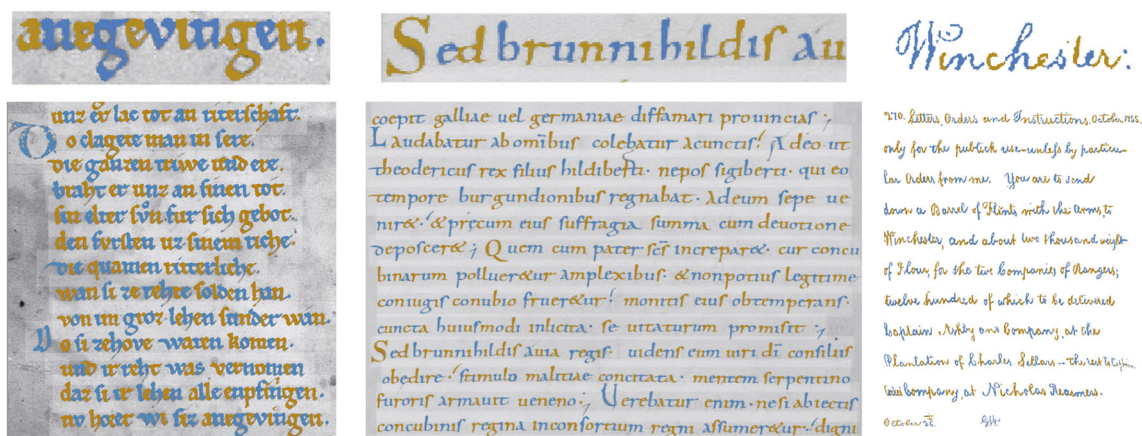 anegevingen.
unz er lac tot an riterschaft.
Do clagete man in sere.
die ganzen triwe und ere.
braht er unz an sinen tot.
sin elter sůn fur sich gebot.
den fvrsten uz sinem riche.
die quamen ritterliche.
wan si ze rehte solden han.
von im groz lehen sunder wan.
Do si zehove waren komen.
und ir reht was vernomen
daz si ir lehen alle enpfingen.
nv horet wi siz anegevingen.
Sed brunnihildis au
coepit galliae uel germaniae diffamari prouincias ;
Laudabatur ab omībus colebatur a cunctis! Adeo ut
theodericus rex filius hildiberti. nepos sigiberti. qui eo
tempore burgundionibus regnabat. Ad eum sepe ue
nir&! & precum eius suffragia summa cum deuotione
deposcer& ; Quem cum pater scs increpar&. cur concu
binarum polluer&ur amplexibus. & non potius legitime
coniugis conubio fruer&ur! monitis eius obtemperans.
cuncta huiusmodi inlicita. se uitaturum promisit :,
Sed brunnihildis auia regis. uidens eum uiri dī consiliis
obedire. stimulo malitiae concitata. mentem serpentino
furoris armauit ueneno ; Uerebatur enim. ne si abiectis
concubinis regina in consortium regni assumer&ur. digni
Winchester:
270. Letters, Orders and Instructions. October 1755.
only for the publick use—unless by particu—
lar Orders from me. You are to send
down a Barrel of Flints with the Arms, to
Winchester, and about two thousand weight
of Flour, for the two Companies of Rangers;
twelve hundred of which to be delivered
Captain Ashby and Company, at the
Plantation of Charles Sellars—the rest to Captain
Company, at Nicholas Reasmers.
October 26. GW: